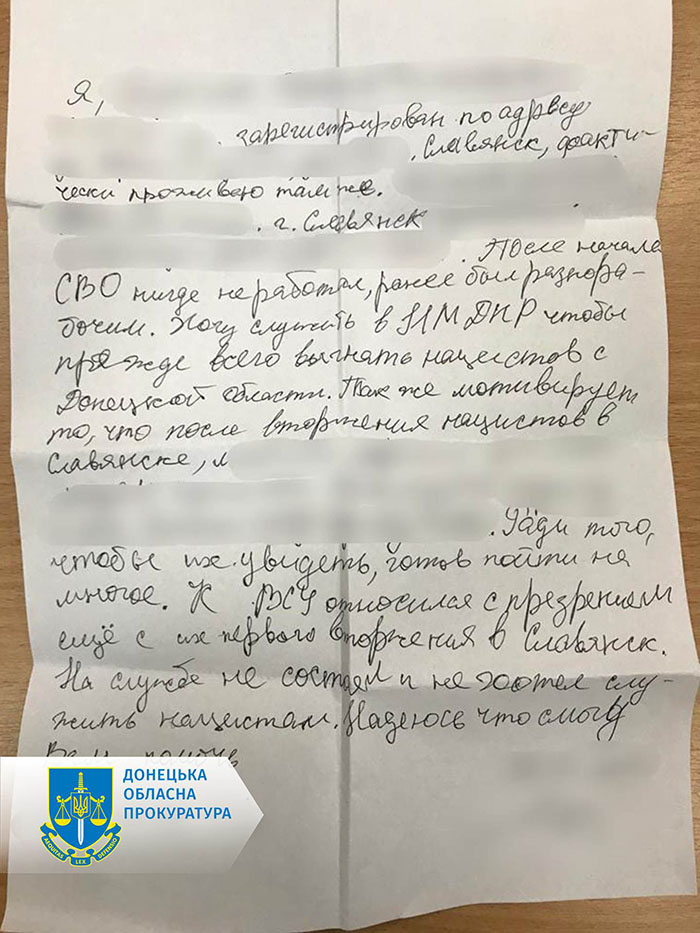 Я,
зарегистрирован по адресу
. Славянск, факти-
чески проживаю там же.
. г. Славянск
. После начала
СВО нигде не работал, ранее был разнора-
бочим. Хочу служить в НМ ДНР чтобы
прежде всего выгнать нацистов с
Донецкой области. Так же мотивирует
то, что после вторжения нацистов в
Славянске, м
. Ради того,
чтобы их увидеть, готов пойти на
многое. К ВСУ относился с презрением
ещё с их первого вторжения в Славянск.
На службе не состоял и не хотел слу-
жить нацистам. Надеюсь что смогу
Вам помочь
ДОНЕЦЬКА
ОБЛАСНА
ПРОКУРАТУРА
AEQUITAS LEX DEFENSIO